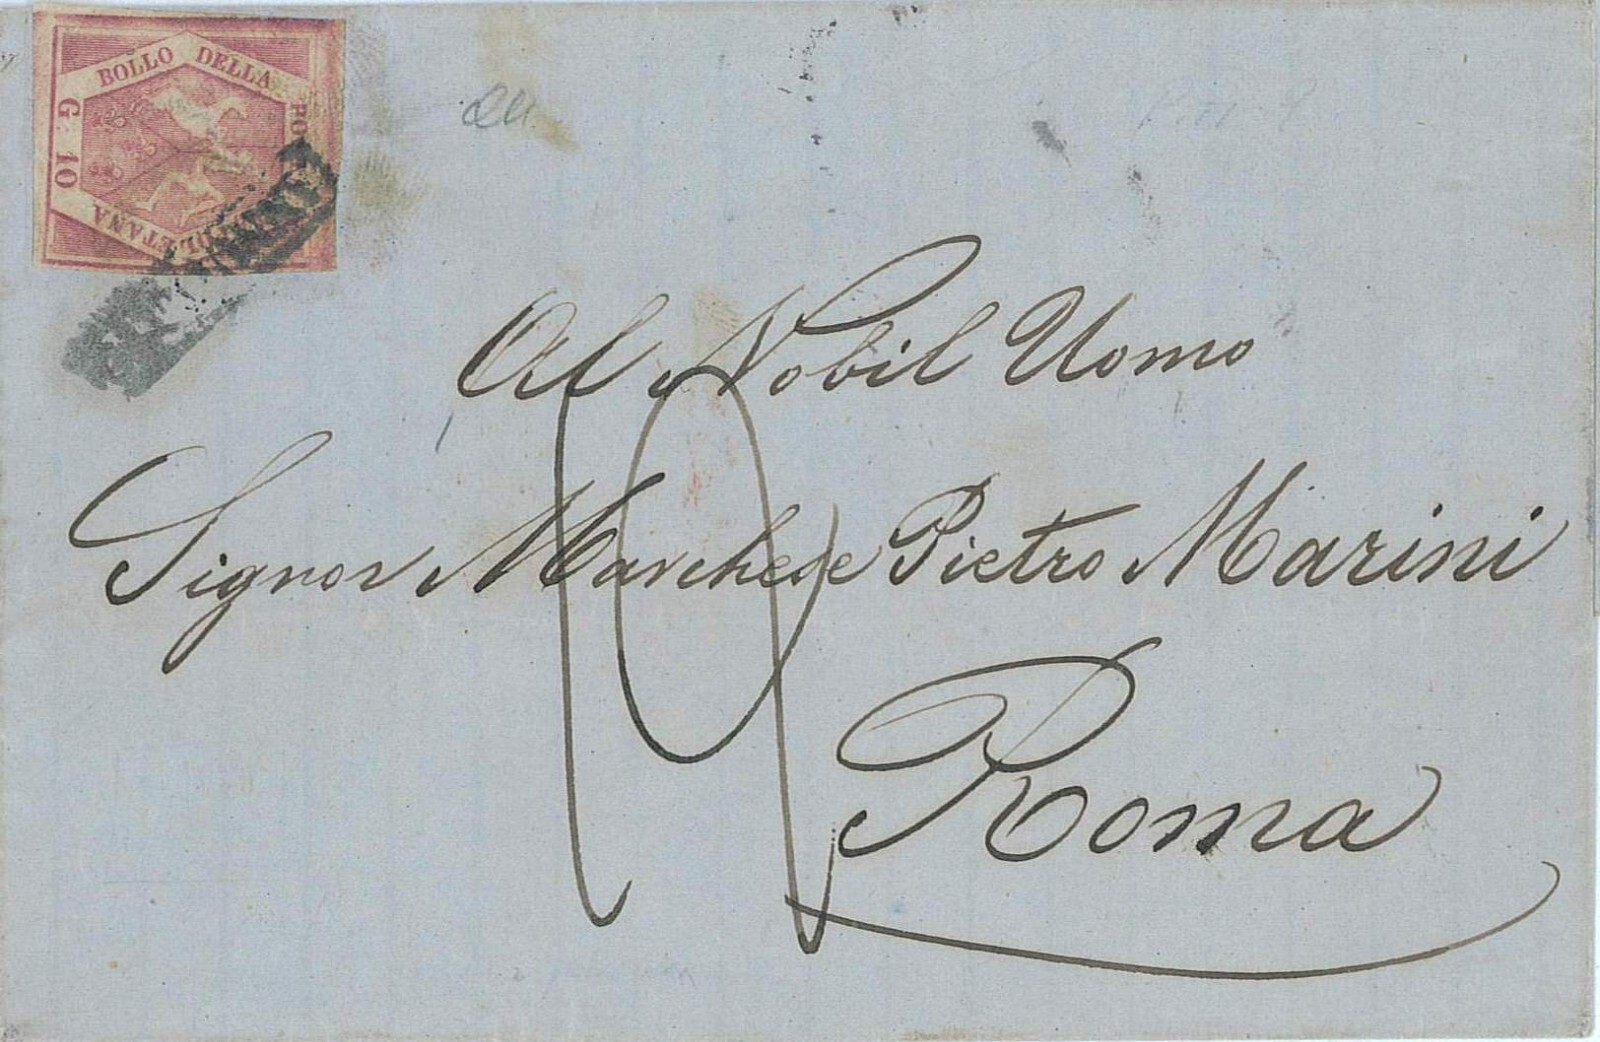 BOLLO DELLA PO
NAPOLETANA
G. 10
Al Nobil Uomo
Signor Marchese Pietro Marini
Roma